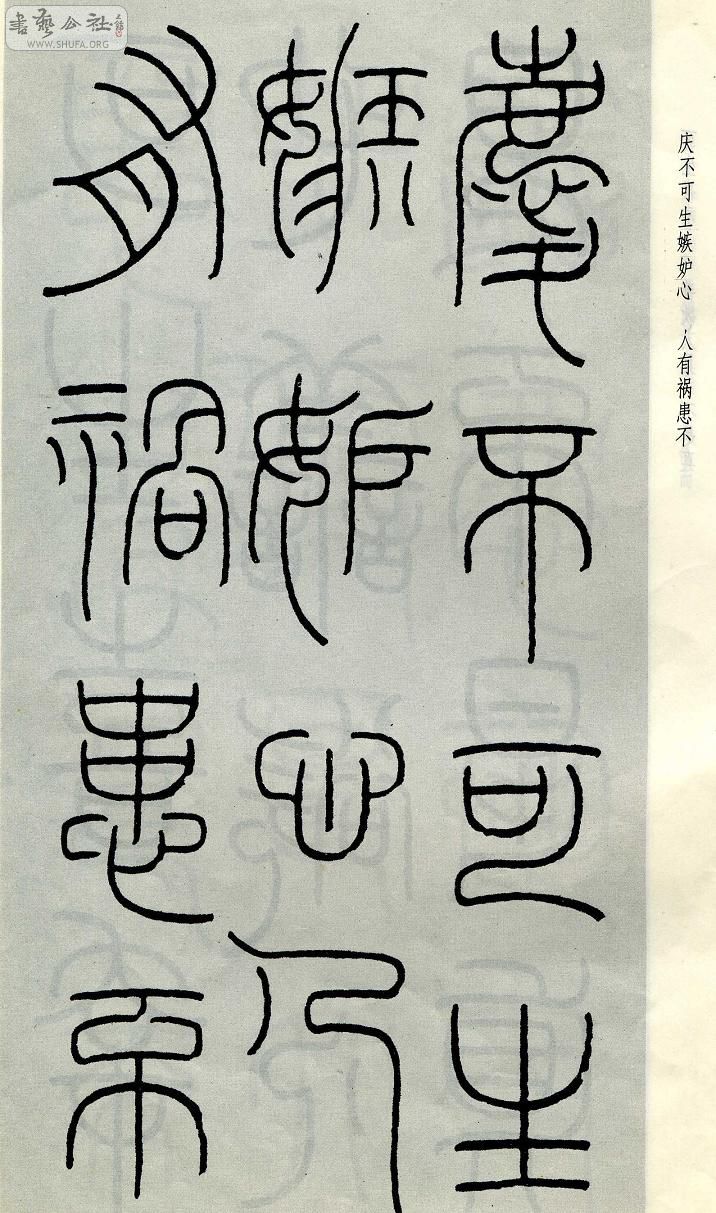 慶不可生
嫉妒心人
有禍患不
庆不可生嫉妒心 人有祸患不
書藝公社
WWW.SHUFA.ORG